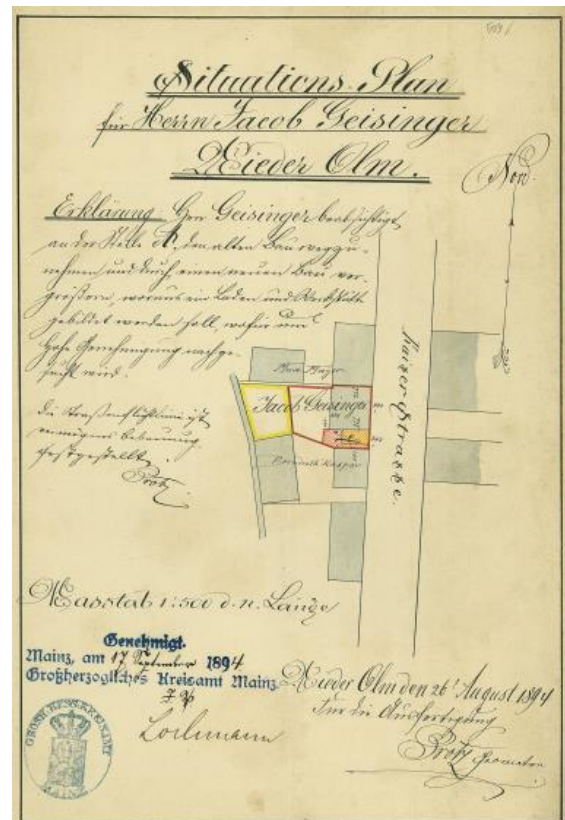 Situations-Plan
für Herrn Jacob Geisinger
Nieder Olm.
Nord.
Erklärung Herr Geisinger beabsichtigt
an der Stelle A, den alten Bau wegzu-
nehmen und durch einen neuen Bau ver-
größern, woraus ein Laden und Werkstätte
gebildet werden soll, wofür um
hohe Genehmigung nachge-
sucht wird.
die Straßenfluchtlinie ist
Bebauung
festgestellt.
Jacob Geisinger
Kaiserstrasse.
Masstab 1:500 d. n. Länge
Genehmigt.
Mainz, am 17 September 1894
Großherzogliches Kreisamt Mainz.
Nieder Olm den 26 August 1894
Für die Ausfertigung
Geometer
GROSH. HESS. KREISAMT
MAINZ